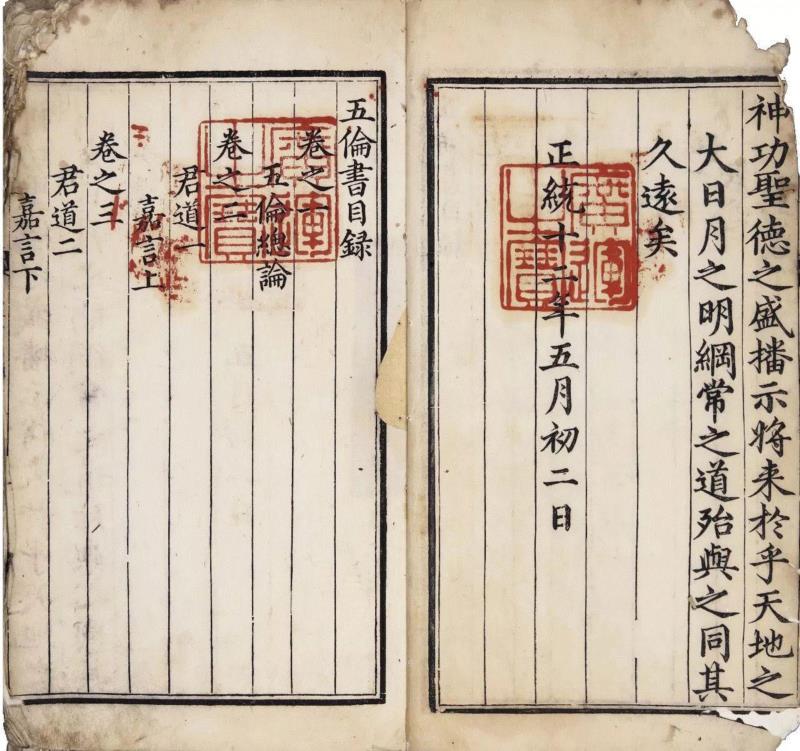 神功聖德之盛播示將来於乎天地之
大日月之明綱常之道殆與之同其
久遠矣
正統十二年五月初二日
廣運之寶
五倫書目録
卷之一
五倫總論
卷之二
君道一
嘉言上
卷之三
君道二
嘉言下
廣運之寶